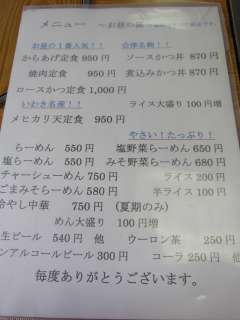 メニュー ～お昼の
お昼の1番人気！！ 会津名物！！
からあげ定食 950円 ソースかつ丼 870円
焼肉定食 950円 煮込みかつ丼 870円
ロースかつ定食 1,000円
いわき名産！！ ライス大盛り 100円増
メヒカリ天定食 950円
やさい！たっぷり！
らーめん 550円 塩野菜らーめん 650円
塩らーめん 550円 みそ野菜らーめん 680円
チャーシューめん 750円 ライス 200円
ごまみそらーめん 580円 半ライス 100円
冷やし中華 750円 （夏期のみ）
めん大盛り 100円増
生ビール 540円 他 ウーロン茶 250円
ンアルコールビール 300円 コーラ 250円 他
毎度ありがとうございます。